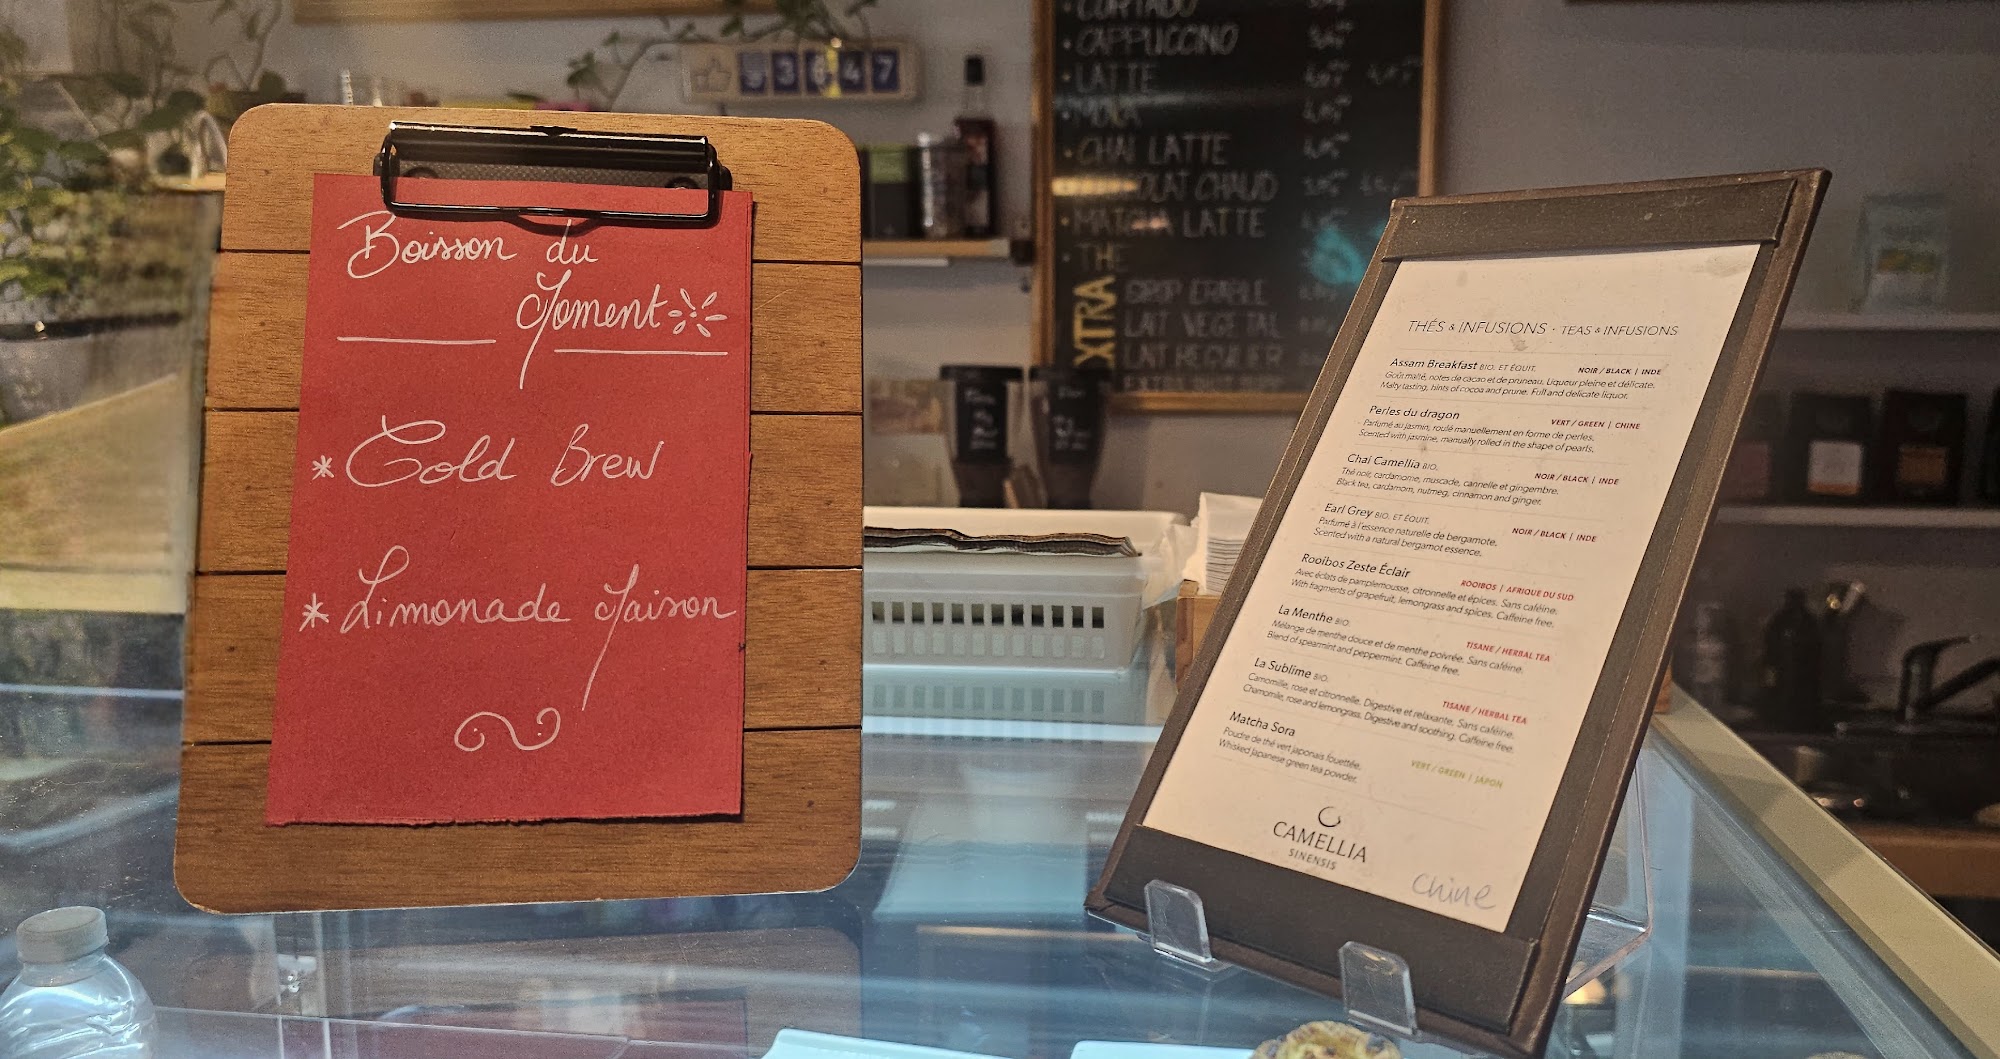 Boisson du
Moment
* Cold Brew
* Limonade Maison
3647
CORTADO
• CAPPUCCINO
• LATTE
• MOKA
• CHAI LATTE
CHOCOLAT CHAUD
• MATCHA LATTE
• THÉ
XTRA
SIROP ÉRABLE
LAIT VEGETAL
LAIT REGULIER
THÉS & INFUSIONS • TEAS & INFUSIONS
Assam Breakfast BIO. ET ÉQUIT. NOIR / BLACK | INDE
Goût malté, notes de cacao et de pruneau. Liqueur pleine et délicate.
Malty tasting, hints of cocoa and prune. Full and delicate liquor.
Perles du dragon VERT / GREEN | CHINE
Parfumé au jasmin, roulé manuellement en forme de perles.
Scented with jasmine, manually rolled in the shape of pearls.
Chai Camellia BIO. NOIR / BLACK | INDE
Thé noir, cardamome, muscade, cannelle et gingembre.
Black tea, cardamom, nutmeg, cinnamon and ginger.
Earl Grey BIO. ET ÉQUIT. NOIR / BLACK | INDE
Parfumé à l'essence naturelle de bergamote.
Scented with a natural bergamot essence.
Rooibos Zeste Éclair ROOIBOS | AFRIQUE DU SUD
Avec éclats de pamplemousse, citronnelle et épices. Sans caféine.
With fragments of grapefruit, lemongrass and spices. Caffeine free.
La Menthe BIO. TISANE / HERBAL TEA
Mélange de menthe douce et de menthe poivrée. Sans caféine.
Blend of spearmint and peppermint. Caffeine free.
La Sublime BIO. TISANE / HERBAL TEA
Camomille, rose et citronnelle. Digestive et relaxante. Sans caféine.
Chamomile, rose and lemongrass. Digestive and soothing. Caffeine free.
Matcha Sora VERT / GREEN | JAPON
Poudre de thé vert japonais fouettée.
Whisked Japanese green tea powder.
CAMELLIA
SINENSIS
Chine